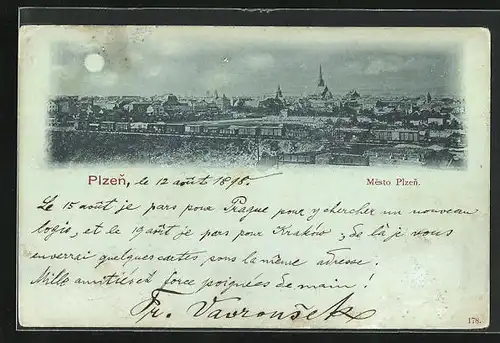 Plzeň, le 12 août 1898.
Město Plzeň.
Le 15 août je pars pour Prague pour y chercher un nouveau
logis, et le 19 août je pars pour Kraków, de là je vous
enverrai quelques cartes sous la même adresse.
Mille amitiés et force poignées de main!
Fr. Vavroušek
178.